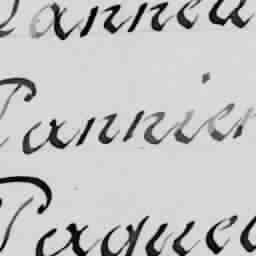 Pannea
Pannier
Paque